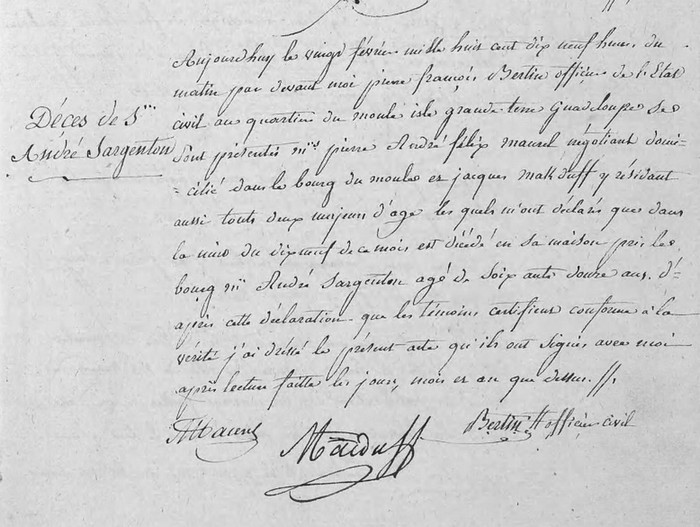 Décès de Sr.
André Sargenton
Aujourdhuy le vingt février mille huit cent dix neuf heures du
matin par devant moi pierre françois Bertin officier de l'Etat
civil au quartier du moule isle grande terre Guadeloupe se
sont présentés mrs. pierre André félix maurel négotiant domi-
-cilié dans le bourg du moule et jacques makduff y résidant
aussi touts deux majeurs d'age les quels m'ont déclarés que dans
la nuit du dixneuf de ce mois est décédé en sa maison près le
bourg mr. André Sargenton agé de soixante douze ans. d'-
après cette déclaration que les témoins certifient conforme à la
vérité j'ai dressé le présent acte qu'ils ont signés avec moi
après lecture faitte les jour, mois et an que dessus.
Bertin officier civil